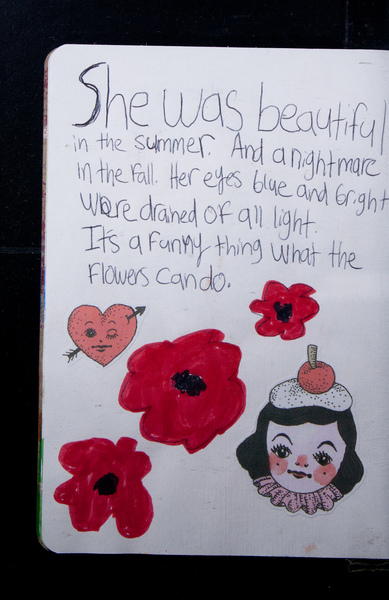 She was beautiful
in the summer. And a nightmare
in the Fall. Her eyes blue and bright
were drained of all light.
It's a funny thing what the
flowers can do.